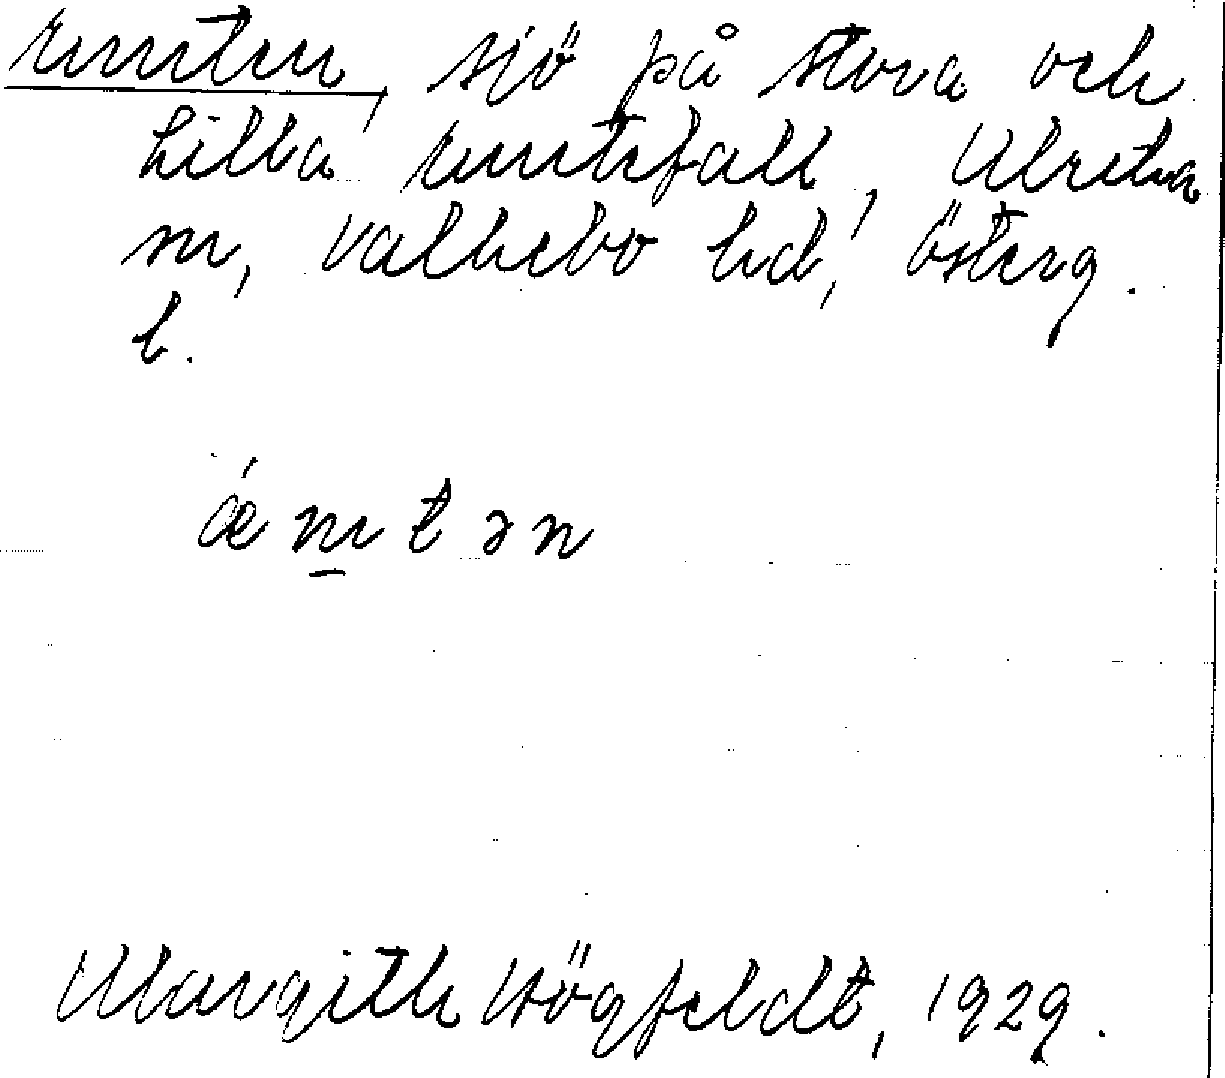 Emten, sjö på Stora och
Lilla Emtefall, Ulrika
sn, Valkebo hd, Österg.
l.
ǽ m̲ t ə n
Margith Högfeldt, 1929.